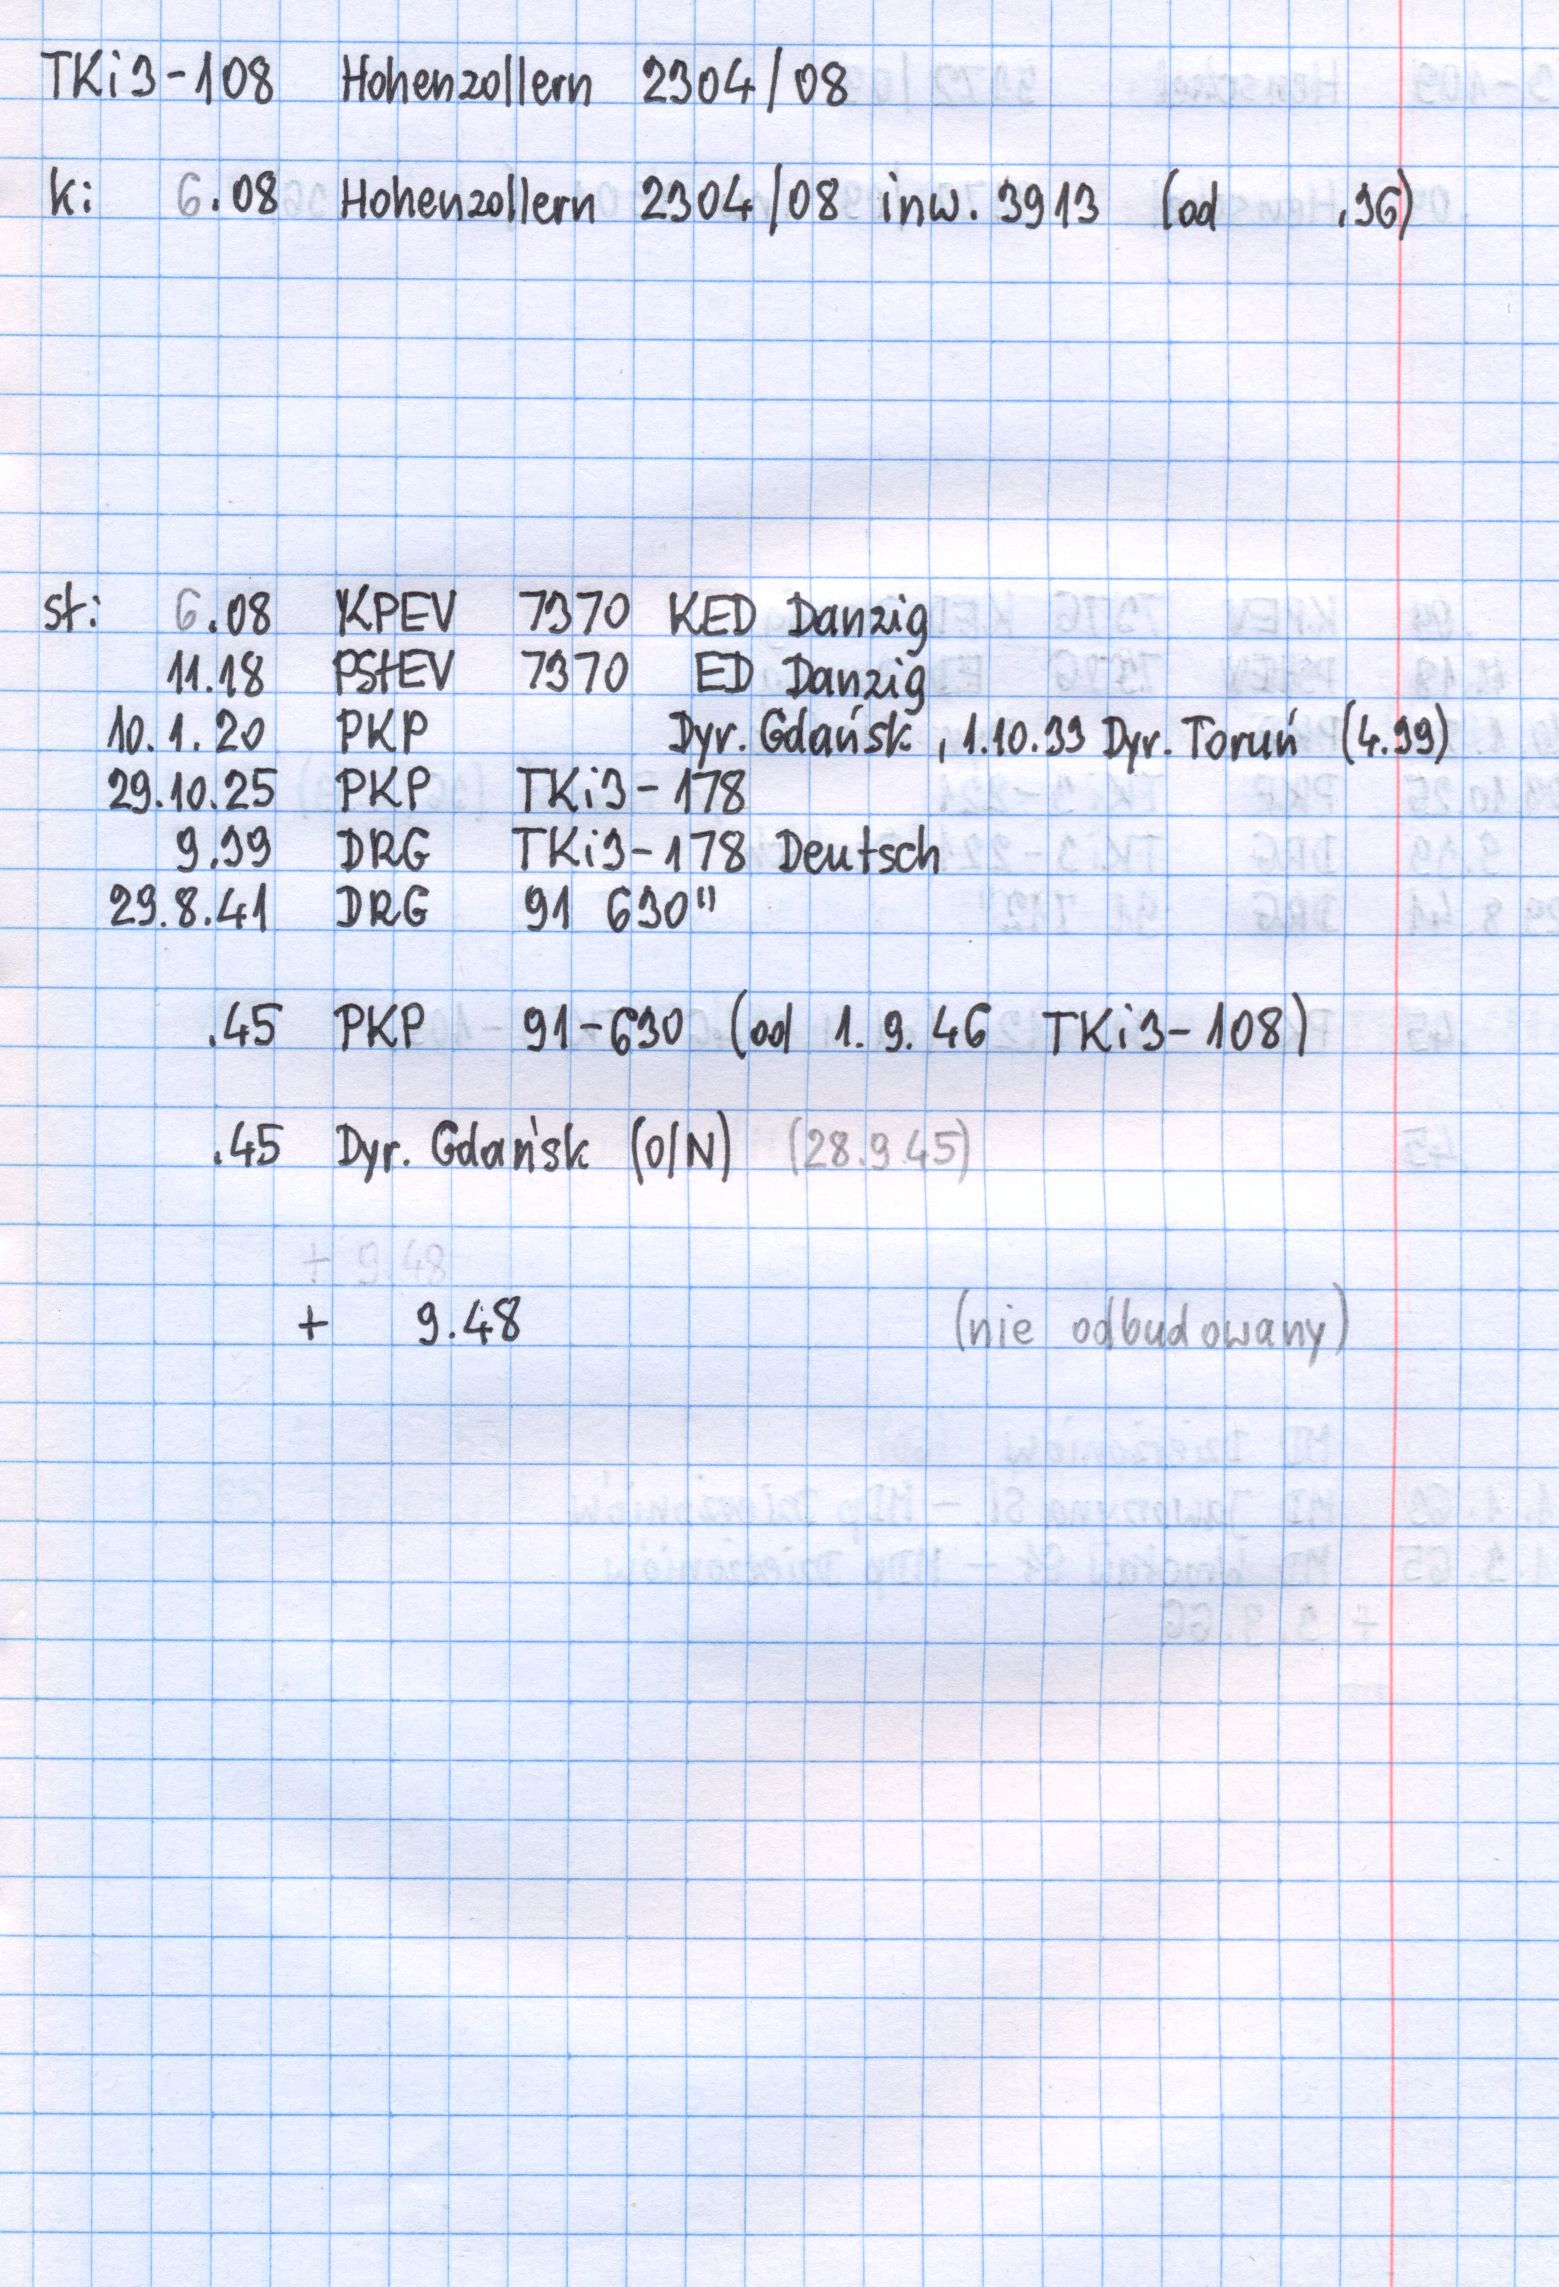 TKi3-108 Hohenzollern 2304/08
k: 6.08 Hohenzollern 2304/08 inw. 3913 (od .36)
st: 6.08 KPEV 7370 KED Danzig
11.18 PStEV 7370 ED Danzig
10.1.20 PKP Dyr. Gdańsk, 1.10.33 Dyr. Toruń (4.39)
29.10.25 PKP TKi3-178
9.39 DRG TKi3-178 Deutsch
29.8.41 DRG 91 630"
.45 PKP 91-630 (od 1.9.46 TKi3-108)
.45 Dyr. Gdańsk (O/N) (28.9.45)
+ 9.48
+ 9.48 (nie odbudowany)